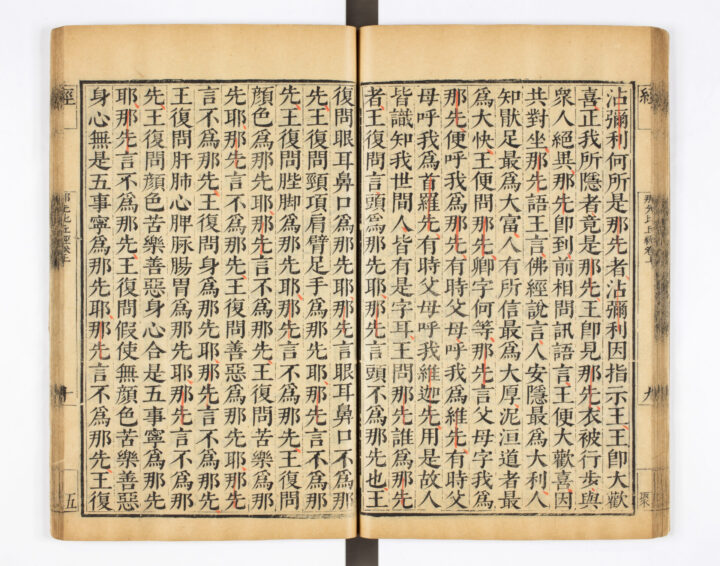 經
那先比丘經卷上
九
聚
沾彌利何所是那先者沾彌利因指示王王卽大歡
喜正我所隱者竟是那先王卽見那先衣被行步與
衆人絕異那先卽到前相問訊語言王便大歡喜因
共對坐那先語王言佛經說言人安隱最爲大利人
知猒足最爲大富人有所信最爲大厚泥洹道者最
爲大快王便問那先卿字何等那先言父母字我爲
那先便呼我爲那先有時父母呼我爲維先有時父
母呼我爲首羅先有時父母呼我維迦先用是故人
皆識知我世間人皆有是字耳王問那先誰爲那先
者王復問言頭爲那先耶那先言頭不爲那先也王
復問眼耳鼻口爲那先耶那先言眼耳鼻口不爲那
先王復問頸項肩臂足手爲那先耶那先言不爲那
先王復問䏶脚爲那先耶那先言不爲那先王復問
顔色爲那先耶那先言不爲那先王復問苦樂爲那
先耶那先言不爲那先王復問善惡爲那先耶那先
言不爲那先王復問身爲那先耶那先言不爲那先
王復問肝肺心脾脈腸胃爲那先耶那先言不爲那
先王復問顔色苦樂善惡身心合是五事寧爲那先
耶那先言不爲那先王復問假使無顔色苦樂善惡
身心無是五事寧爲那先耶那先言不爲那先王復
經
那先比丘經卷上
五